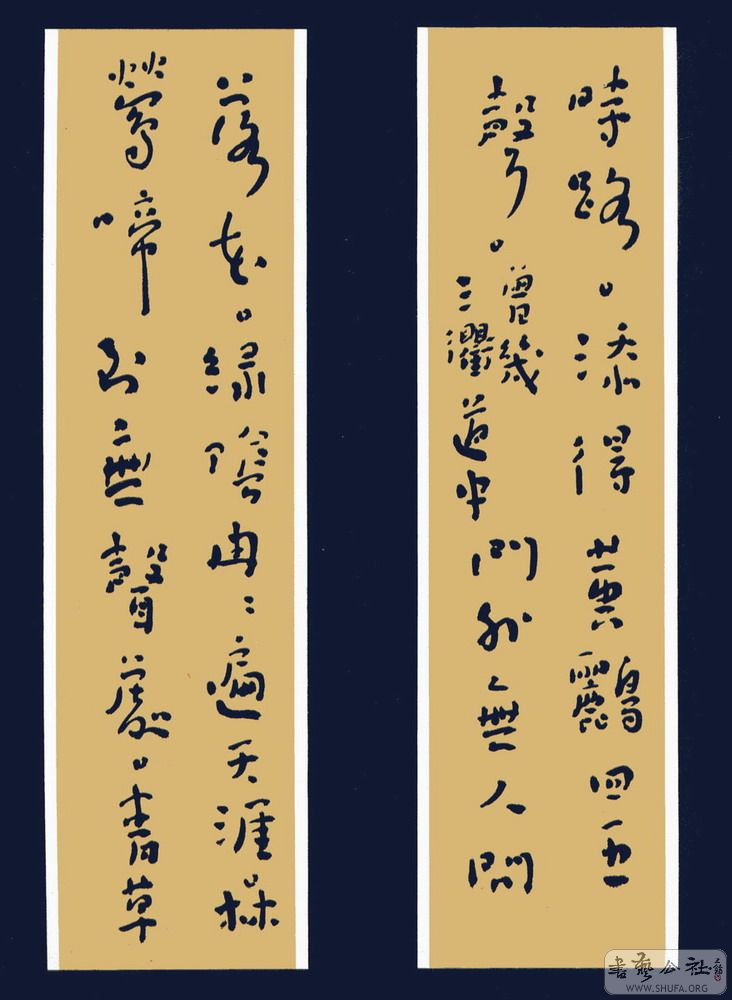 時路。添得黃鸝四五
聲。曾幾三衢道中門外無人問
落花。綠陰冉〻遍天涯。林
鶯啼到無聲處。青草
書藝公社
WWW.SHUFA.ORG